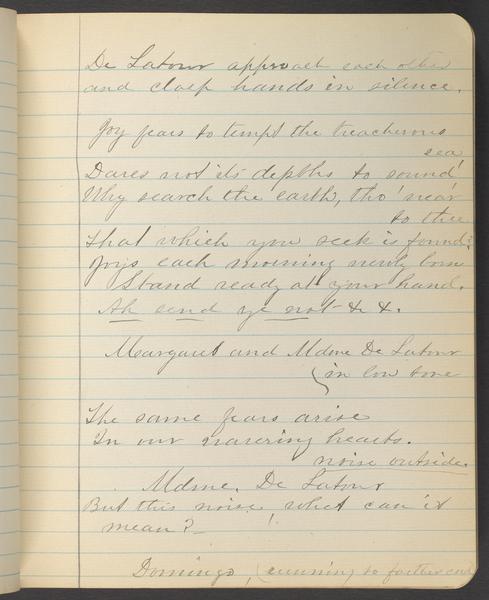 De Latour approach each other
and clasp hands in silence.
Joy fears to tempt the treacherous
sea
Dares not its depths to sound!
Why search the earth, tho' near
to thee
That which you seek is found?
Joys each morning newly born
Stand ready at your hand.
Ah send ye not & &.
Margaret and Mdme De Latour
(in low tone
The same fears arise
In our wavering hearts.
noise outside.
Mdme. De Latour
But this noise! what can it
mean?_
Domingo, (running to further end